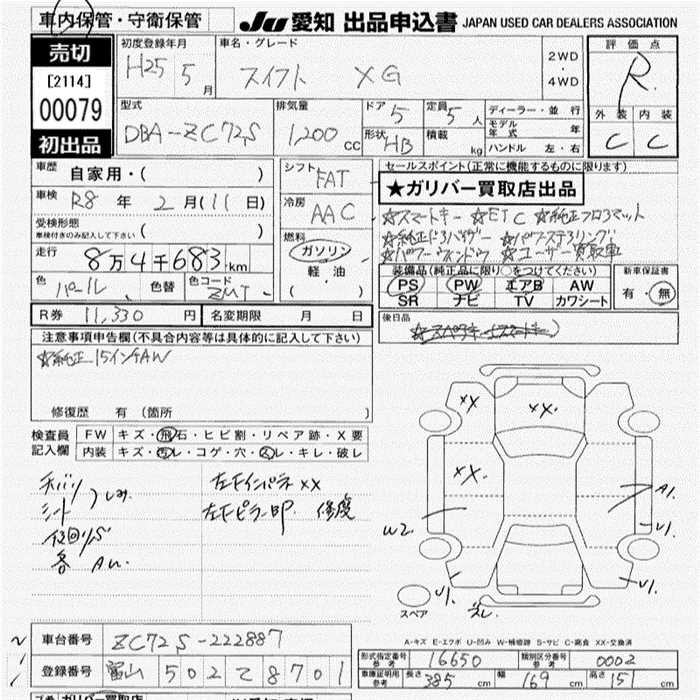 車内保管・守衛保管
JU 愛知 出品申込書 JAPAN USED CAR DEALERS ASSOCIATION
売切
[2114]
00079
初出品
初度登録年月
H25 5月
車名・グレード
スイフト XG
2WD
・
4WD
評価点
R
外装 内装
C C
型式
DBA-ZC72S
排気量
1,200cc
ドア 5
形状 HB
定員 5人
積載 kg
ディーラー・並行
モデル年式 年
ハンドル 左・右
車歴 自家用・( )
車検 R8年 2月(11日)
受検形態
車検付きのみ記入して下さい ( )
走行 8万4千683km
色 パール 色替 色コード ZMT
シフト FAT
冷房 AAC
燃料
ガソリン
軽油
( )
セールスポイント(正常に機能するものに限ります)
★ガリバー買取店出品
☆スマートキー ☆ETC ☆純正フロアマット
☆純正ドアバイザー ☆パワーステアリング
☆パワーウィンドウ ☆ユーザー買取車
装備品(純正品に限り○をつけてください)
PS PW エアB AW
SR ナビ TV カワシート
新車保証書
有・無
R券 11,330円 名変期限 月 日
後日品
☆スペアキー(スマートキー)
注意事項申告欄(不具合内容等は具体的に記入して下さい)
☆純正15インチAW
修復歴 有(箇所 )
検査員記入欄
FW キズ・飛石・ヒビ割・リペア跡・X要
内装 キズ・汚レ・コゲ・穴・スレ・キレ・破レ
シート
左Fインパネ XX
左Fピラー
XX
XX
XX
A1
U1
W2
U1
U1
スレ
スペア
A-キズ E-エクボ U-凹み W-補修跡 S-サビ C-腐食 XX-交換済
車台番号 ZC72S-222887
登録番号 富山 502 て 8701
形式指定番号 参考 16650
類別区分番号 参考 0002
車庫証明用 参考 長さ 385cm 幅 169cm 高さ 151cm
ガリバー買取店